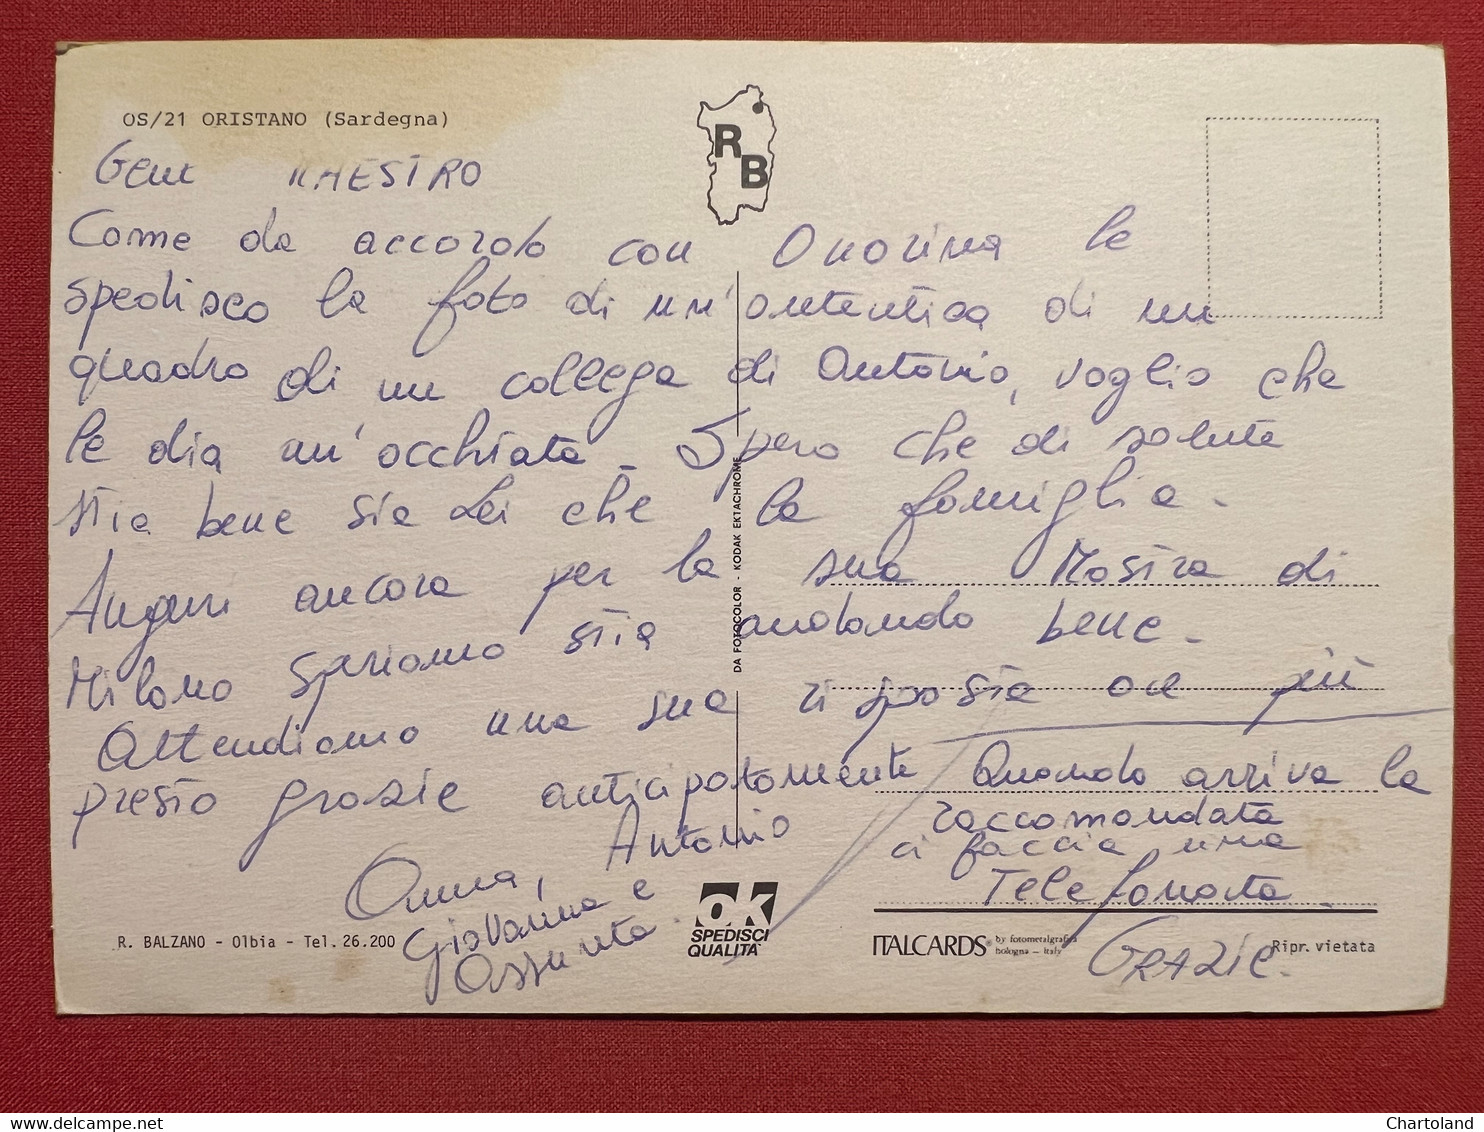 OS/21 ORISTANO (Sardegna)
R B
Gent MAESTRO
Come da accordo con Onorina le
spedisco la foto di un'autentica di un
quadro di un collega di Antonio, voglio che
le dia un'occhiata - Spero che di salute
stia bene sia Lei che la famiglia -
Auguri ancora per la sua Mostra di
Milano speriamo stia andando bene -
Attendiamo una sua risposta al più
presto grazie anticipatamente
Antonio
Anna,
Giovanna e
Assunta.
Quando arriva la
raccomandata
ci faccia una
Telefonata.
GRAZIE.
DA FOTOCOLOR - KODAK EKTACHROME
R. BALZANO - Olbia - Tel. 26.200
ok
SPEDISCI
QUALITA'
ITALCARDS by fotometalgrafica
bologna - italy
Ripr. vietata
delcampe.net
Chartoland